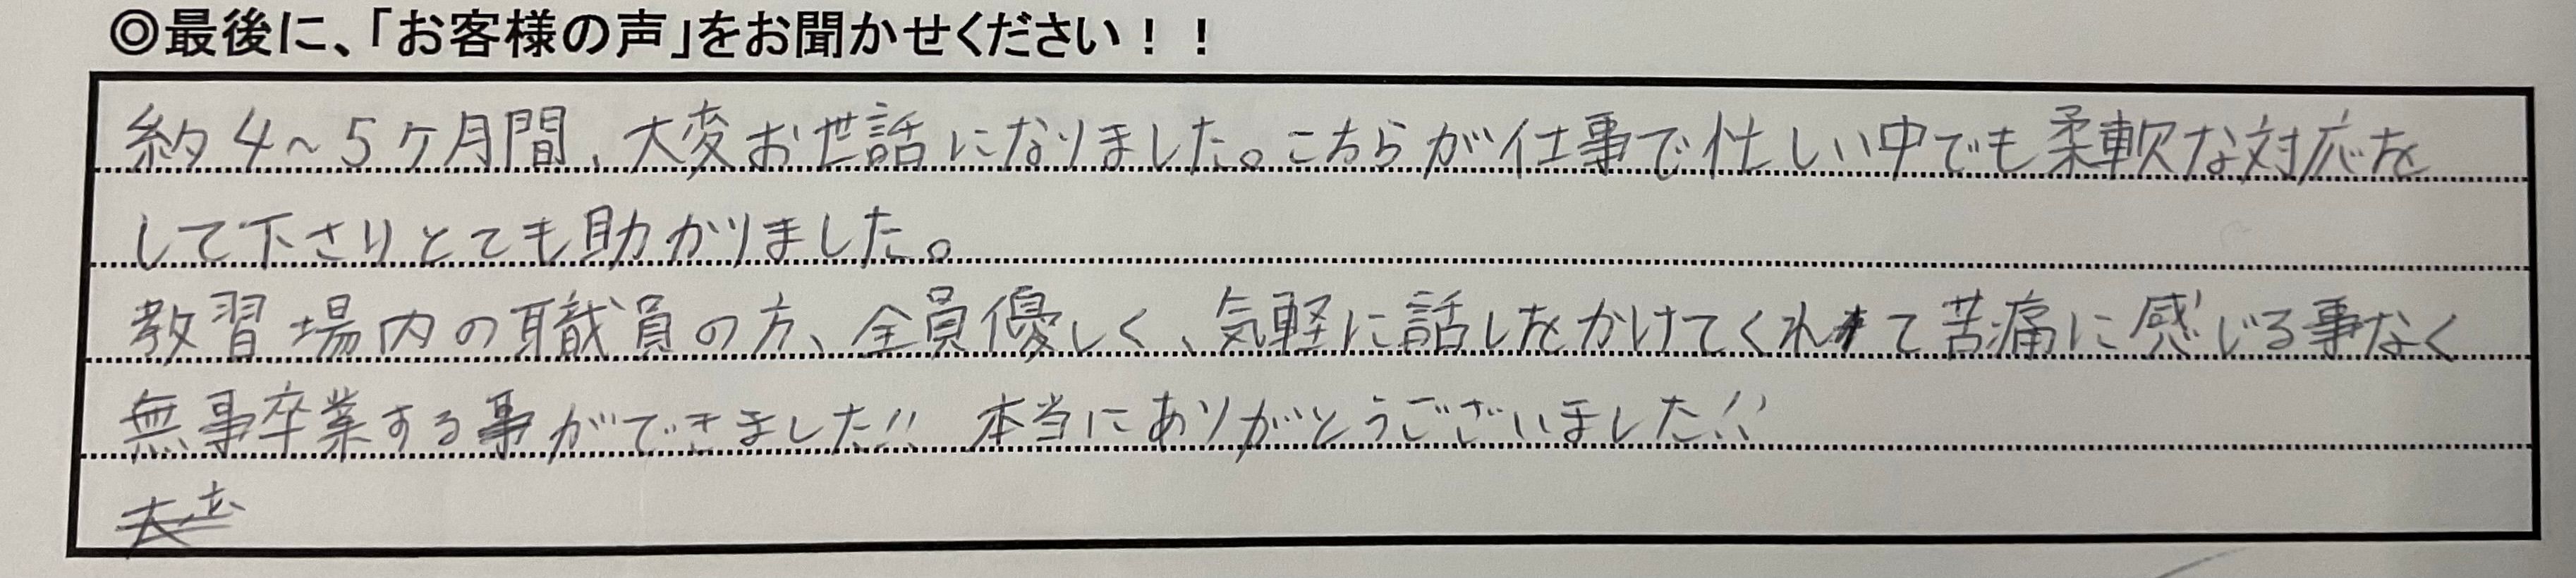 ◎最後に、「お客様の声」をお聞かせください！！
約4～5ケ月間、大変お世話になりました。こちらが仕事で忙しい中でも柔軟な対応を
して下さりとても助かりました。
教習場内の職員の方、全員優しく、気軽に話しをかけてくれて苦痛に感じる事なく
無事卒業する事ができました!! 本当にありがとうございました!!